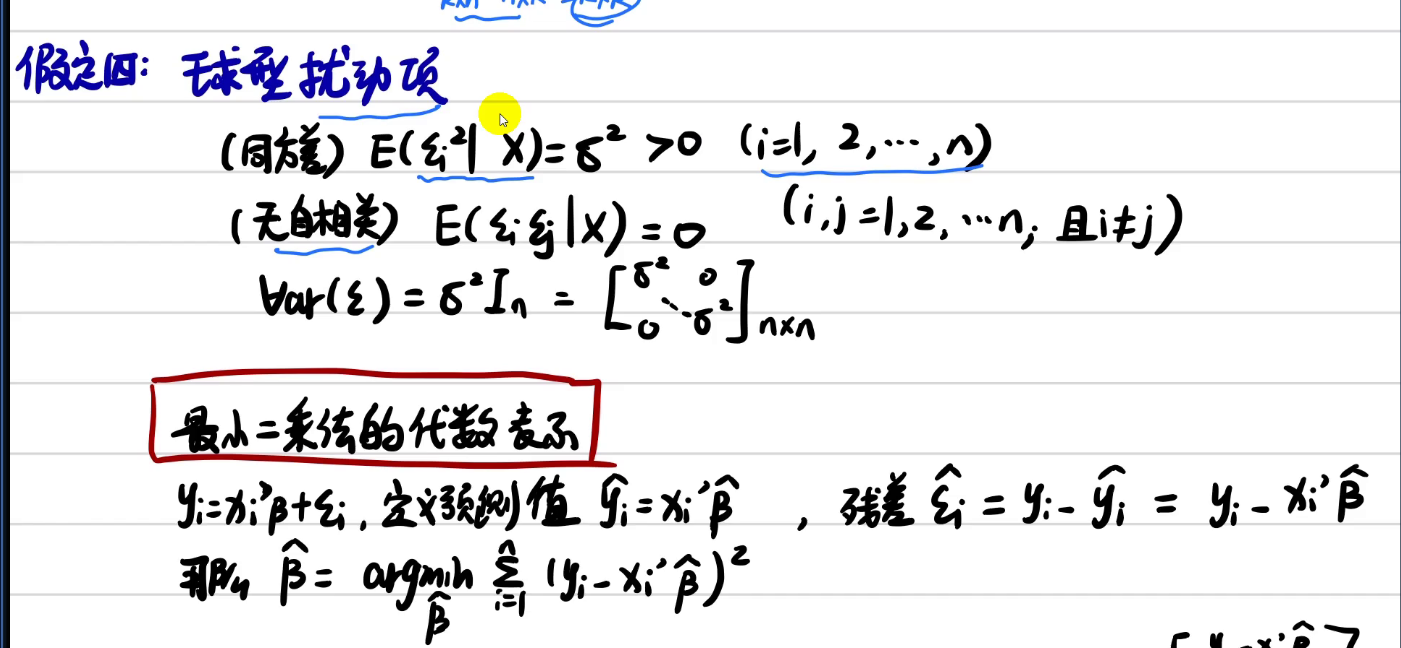 假定四: 球型扰动项
(同方差) E(εi²| X)=σ² >0 (i=1, 2,…,n)
(无自相关) E(εiεj|X)=0 (i,j=1,2,…n, 且i≠j)
Var(ε)=σ²In = [σ² 0 ⋱ 0 σ²]n×n
最小二乘法的代数表示
yi=xi'β+εi, 定义预测值 ŷi=xi'β̂ , 残差 ε̂i = yi-ŷi = yi-xi'β̂
那么 β̂= argmin β̂ Σ i=1 n (yi-xi'β̂)²